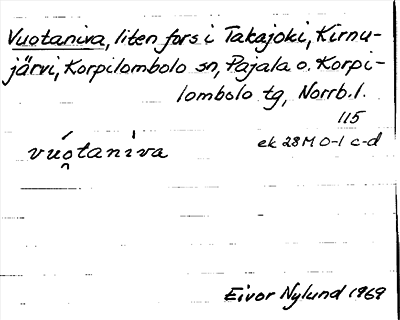 Vuotaniva, liten fors i Takajoki, Kirnu-
järvi, Korpilombolo sn, Pajala o. Korpi-
lombolo tg, Norrb. l.
115
ek 28 M 0-1 c-d
vúo̯taniva
Eivor Nylund 1969